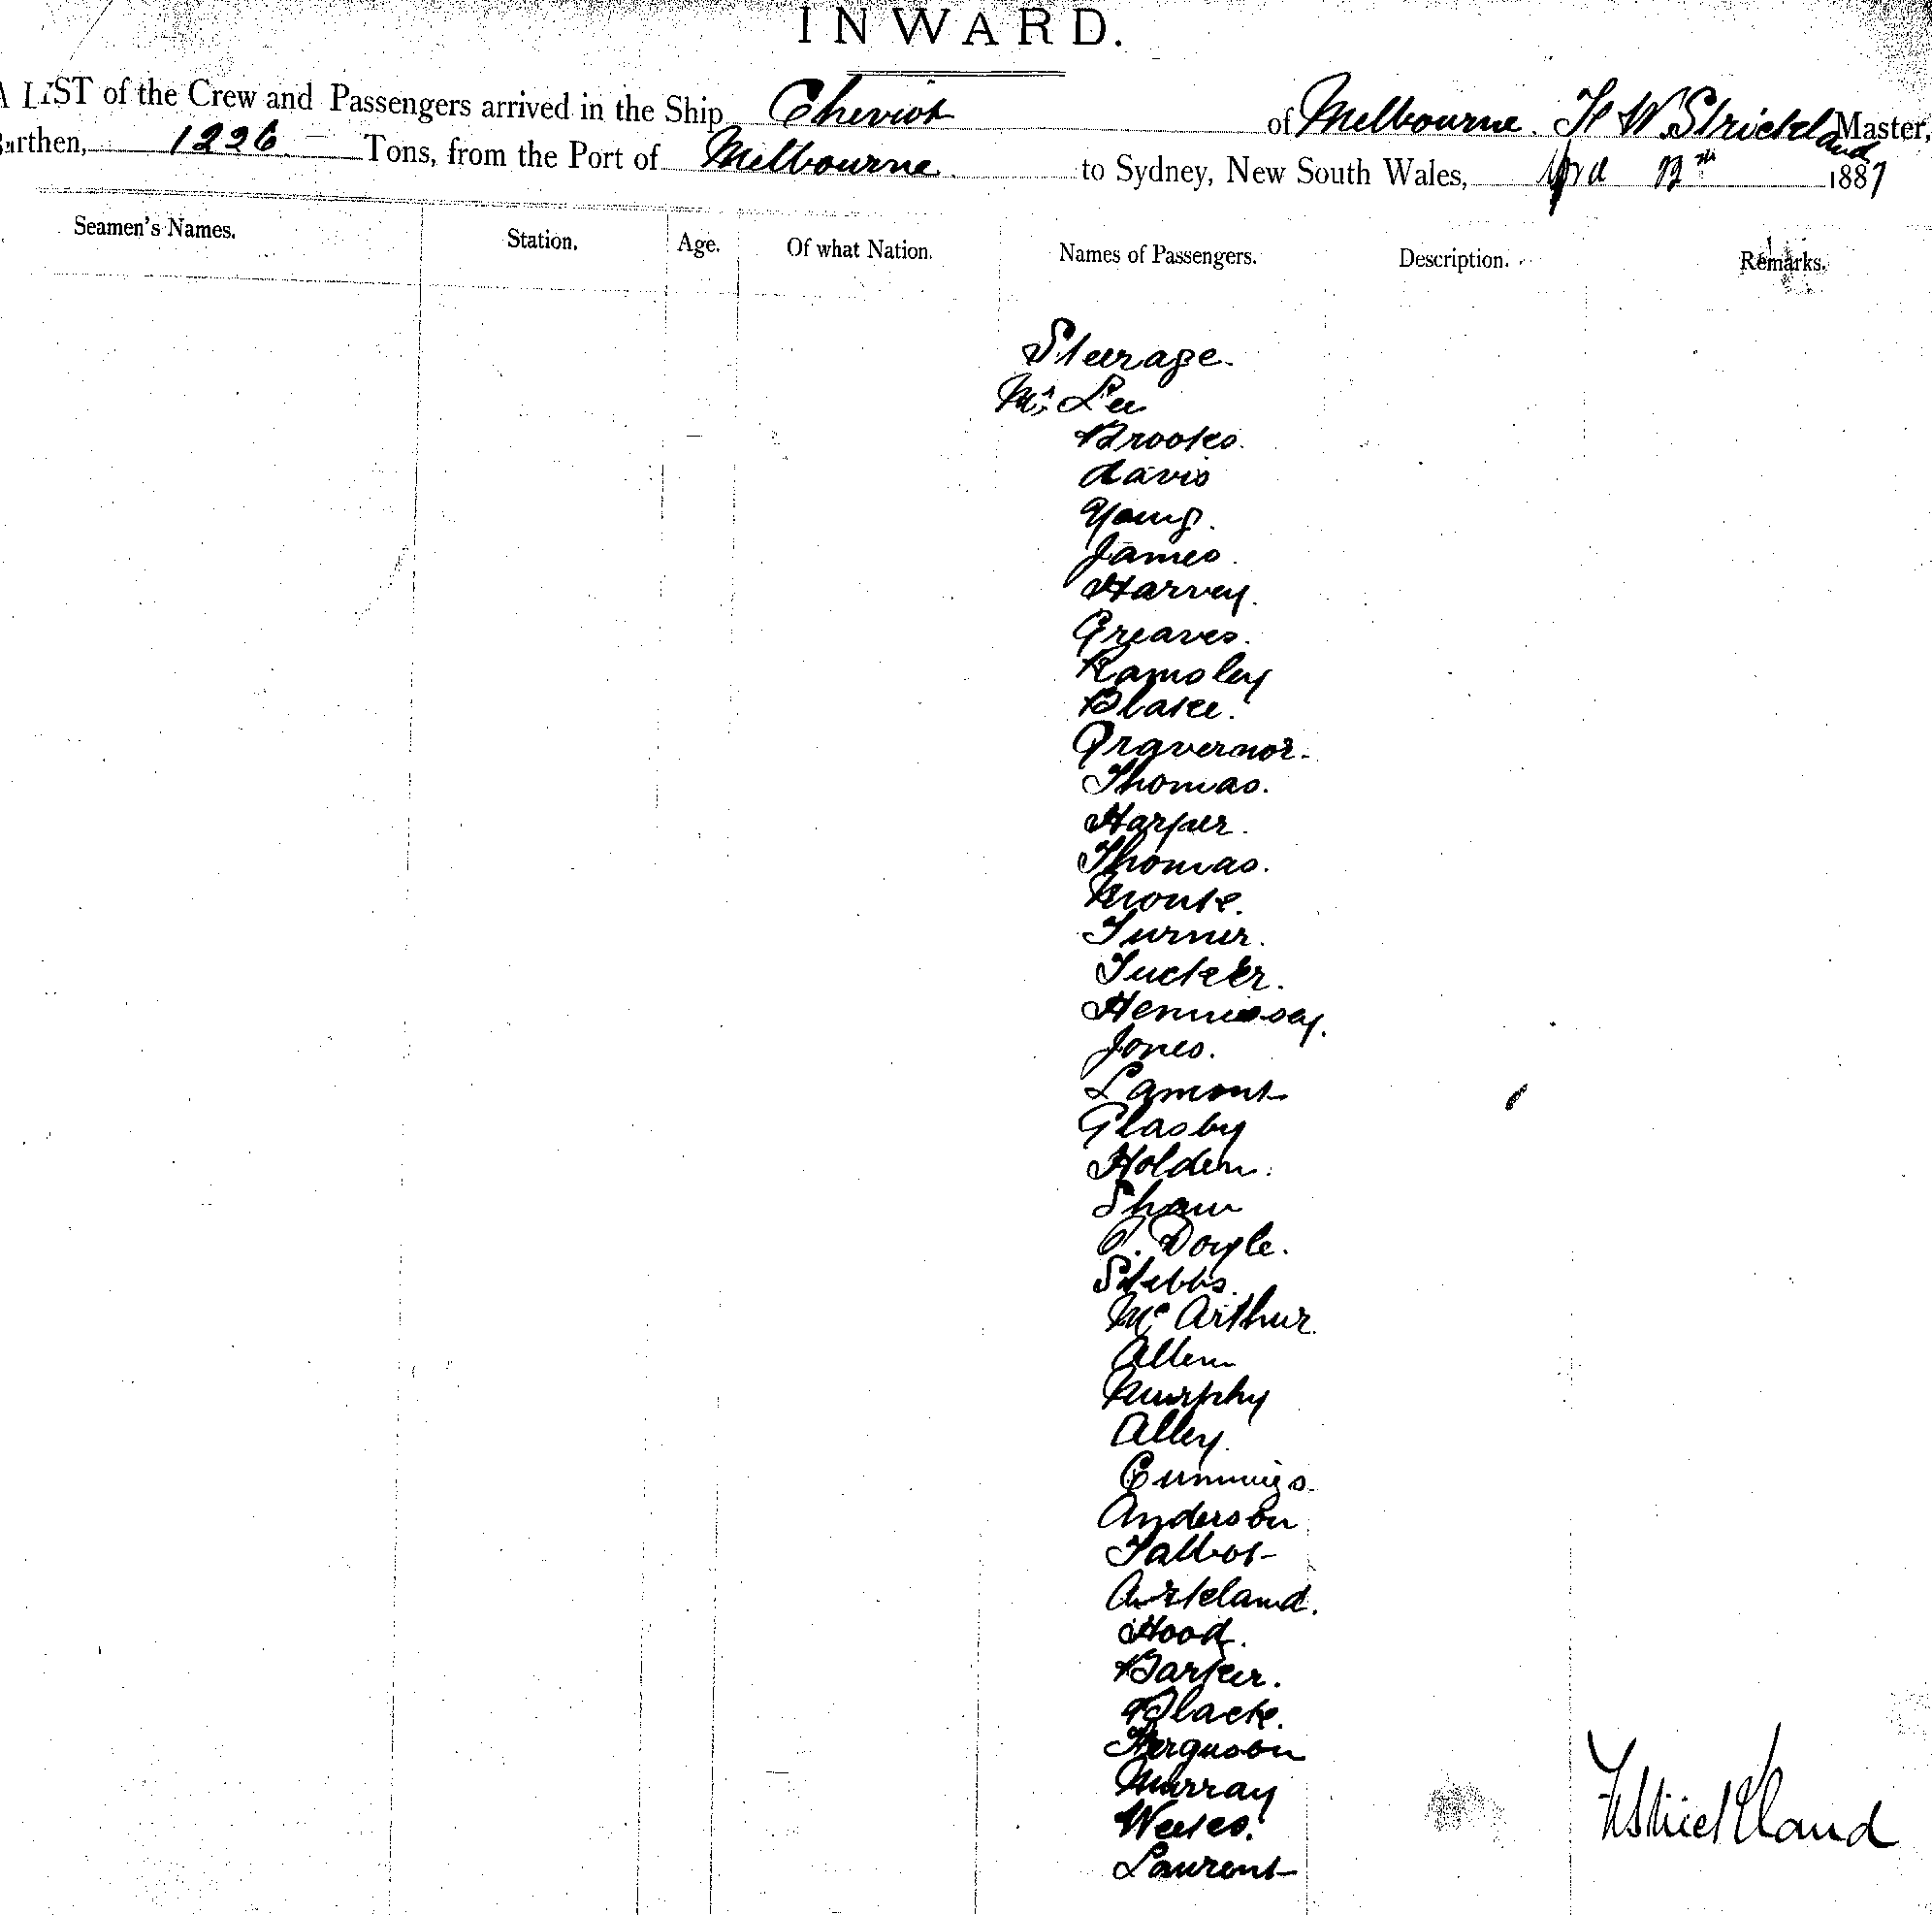 INWARD.
A LIST of the Crew and Passengers arrived in the Ship Cheviot of Melbourne. W Strickland Master,
Burthen, 1226 Tons, from the Port of Melbourne to Sydney, New South Wales, 1887
Seamen's Names. Station. Age. Of what Nation. Names of Passengers. Description. Remarks.
Steerage.
Mr Lee
Brookes.
Davis
Young.
James
Harvey.
Greaves.
Ramsley
Blake.
Gravernor.
Thomas.
Harper.
Thomas.
Monk.
Turner.
Tucker.
Hennessey.
Jones.
Lamont
Glasby
Holden.
Shaw
P. Doyle.
Stebbs.
Mc Arthur
Allen
Murphy
Alley.
Cummings.
Anderson
Talbot
Hood.
Barker.
Black.
Ferguson
Murray
Weekes.
Laurent
Strickland